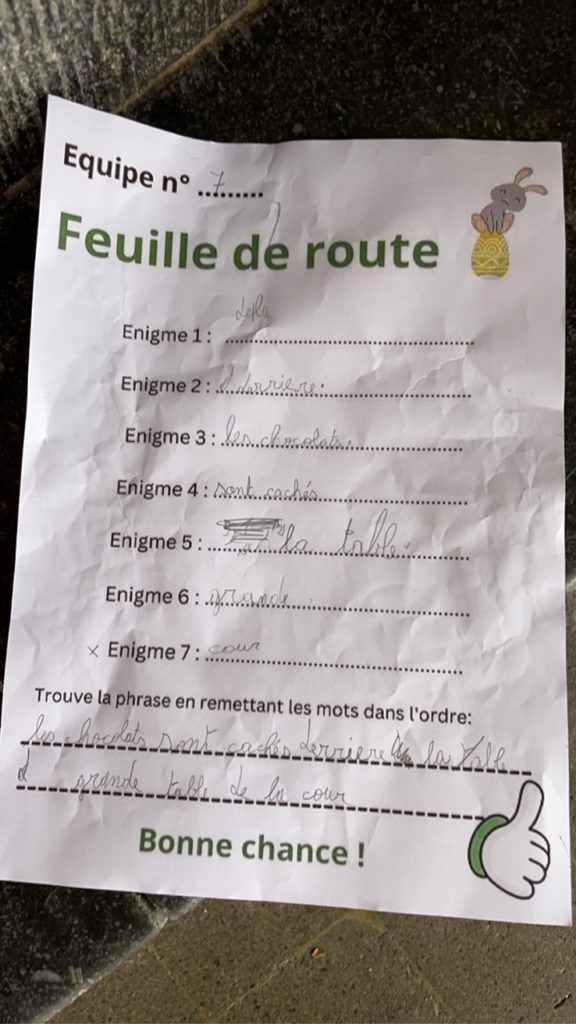 Equipe n° ...7......
Feuille de route
Enigme 1 : de la
Enigme 2 : derriere.
Enigme 3 : les chocolats.
Enigme 4 : sont cachés
Enigme 5 : la table.
Enigme 6 : grande
x Enigme 7 : cour
Trouve la phrase en remettant les mots dans l'ordre:
les chocolats sont cachés derriere la
grande table de la cour
Bonne chance !